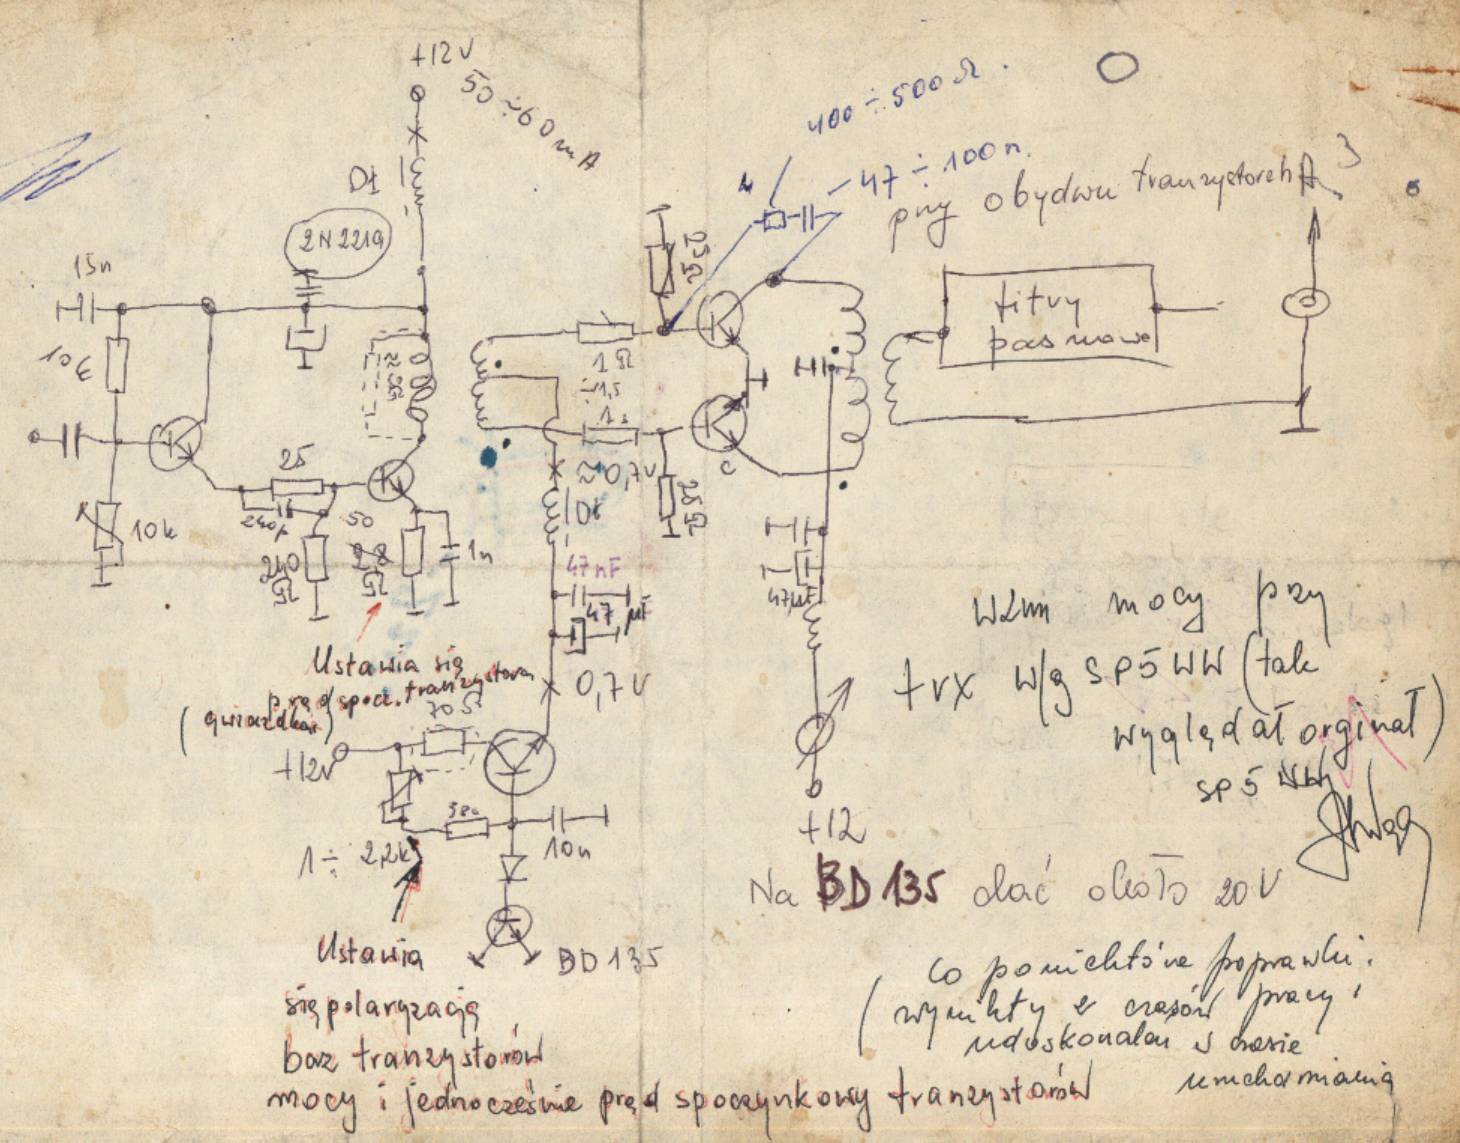 +12V
50÷60mA
400÷500Ω
47÷100n
przy obydwu tranzystorach
Dł
2N2219
15n
filtry
pasmowe
25Ω
1Ω
÷1,5
25
≈0,7V
Dł
25Ω
10k
240p
50
240
1n
47nF
47µF
47µF
Ustawia się
prąd spocz. tranzystora
(gwiazdka)
0,7V
70Ω
+12V
380
10n
1÷2,2k
+12
wzm mocy przy
trx w/g SP5WW (tak
wyglądał orginał)
SP5WW
Na BD135 dać około 20V
Ustawia
się polaryzacją
baz tranzystorów
mocy i jednocześnie prąd spoczynkowy tranzystorów
BD135
Co poniektóre poprawki
(wynikły z czasów pracy i
udoskonaleń w czasie
uruchomiania